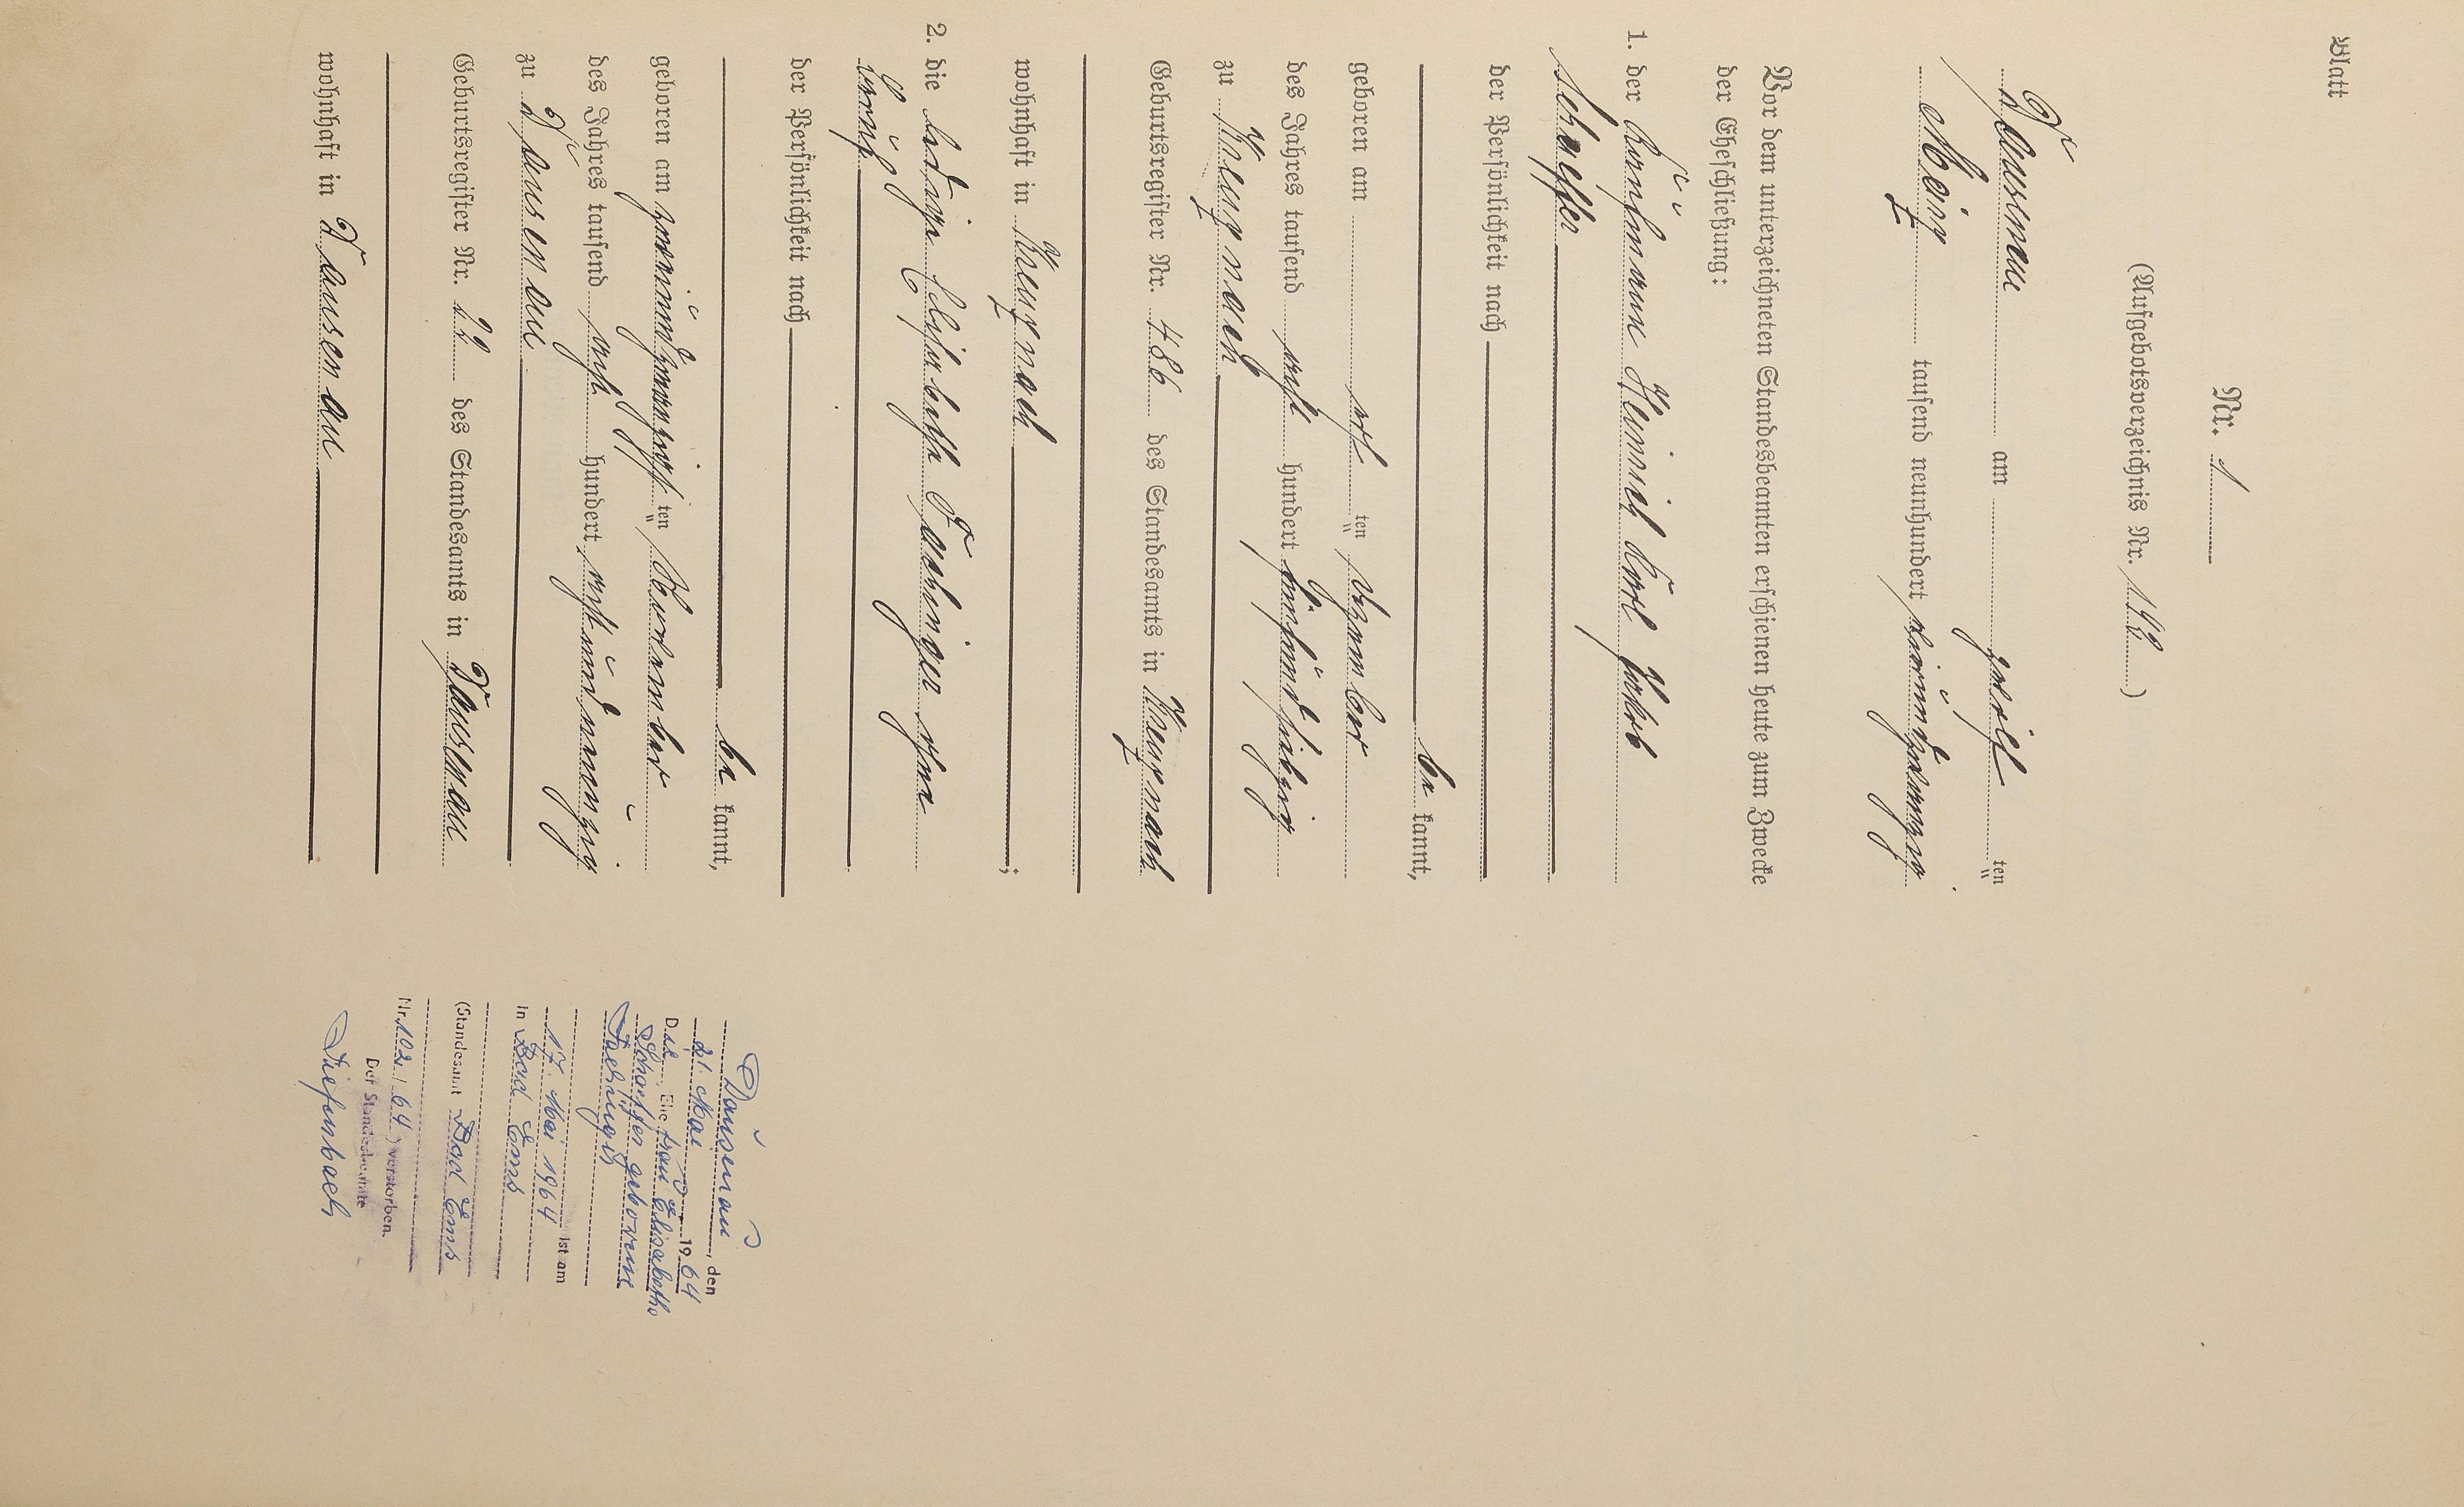 Blatt
Nr. 1
(Aufgebotsverzeichnis Nr. )
Dausenau am zwölf ten
März tausend neunhundert vierundzwanzig
Vor dem unterzeichneten Standesbeamten erschienen heute zum Zwecke
der Eheschließung:
1. der Kaufmann Heinrich Karl Jakob
Schaeffer
der Persönlichkeit nach
be kannt,
geboren am ten Dezember
des Jahres tausend acht hundert fünfundsiebzig
zu Kreuznach
Geburtsregister Nr. 486 des Standesamts in Kreuznach
wohnhaft in Kreuznach ;
2. die ledige Elisabethe Fachinger ohne
Beruf
der Persönlichkeit nach
be kannt,
geboren am zweiundzwanzigsten November
des Jahres tausend acht hundert achtundneunzig
zu Dausenau
Geburtsregister Nr. 22 des Standesamts in Dausenau
wohnhaft in Dausenau
Dausenau, den
21. Mai 1964
Die Ehefrau Elisabethe
Schaeffer geborene
Fachinger
ist am
17. Mai 1964
in Bad Ems
(Standesamt Bad Ems
Nr. 102/64) verstorben.
Der Standesbeamte
Diefenbach